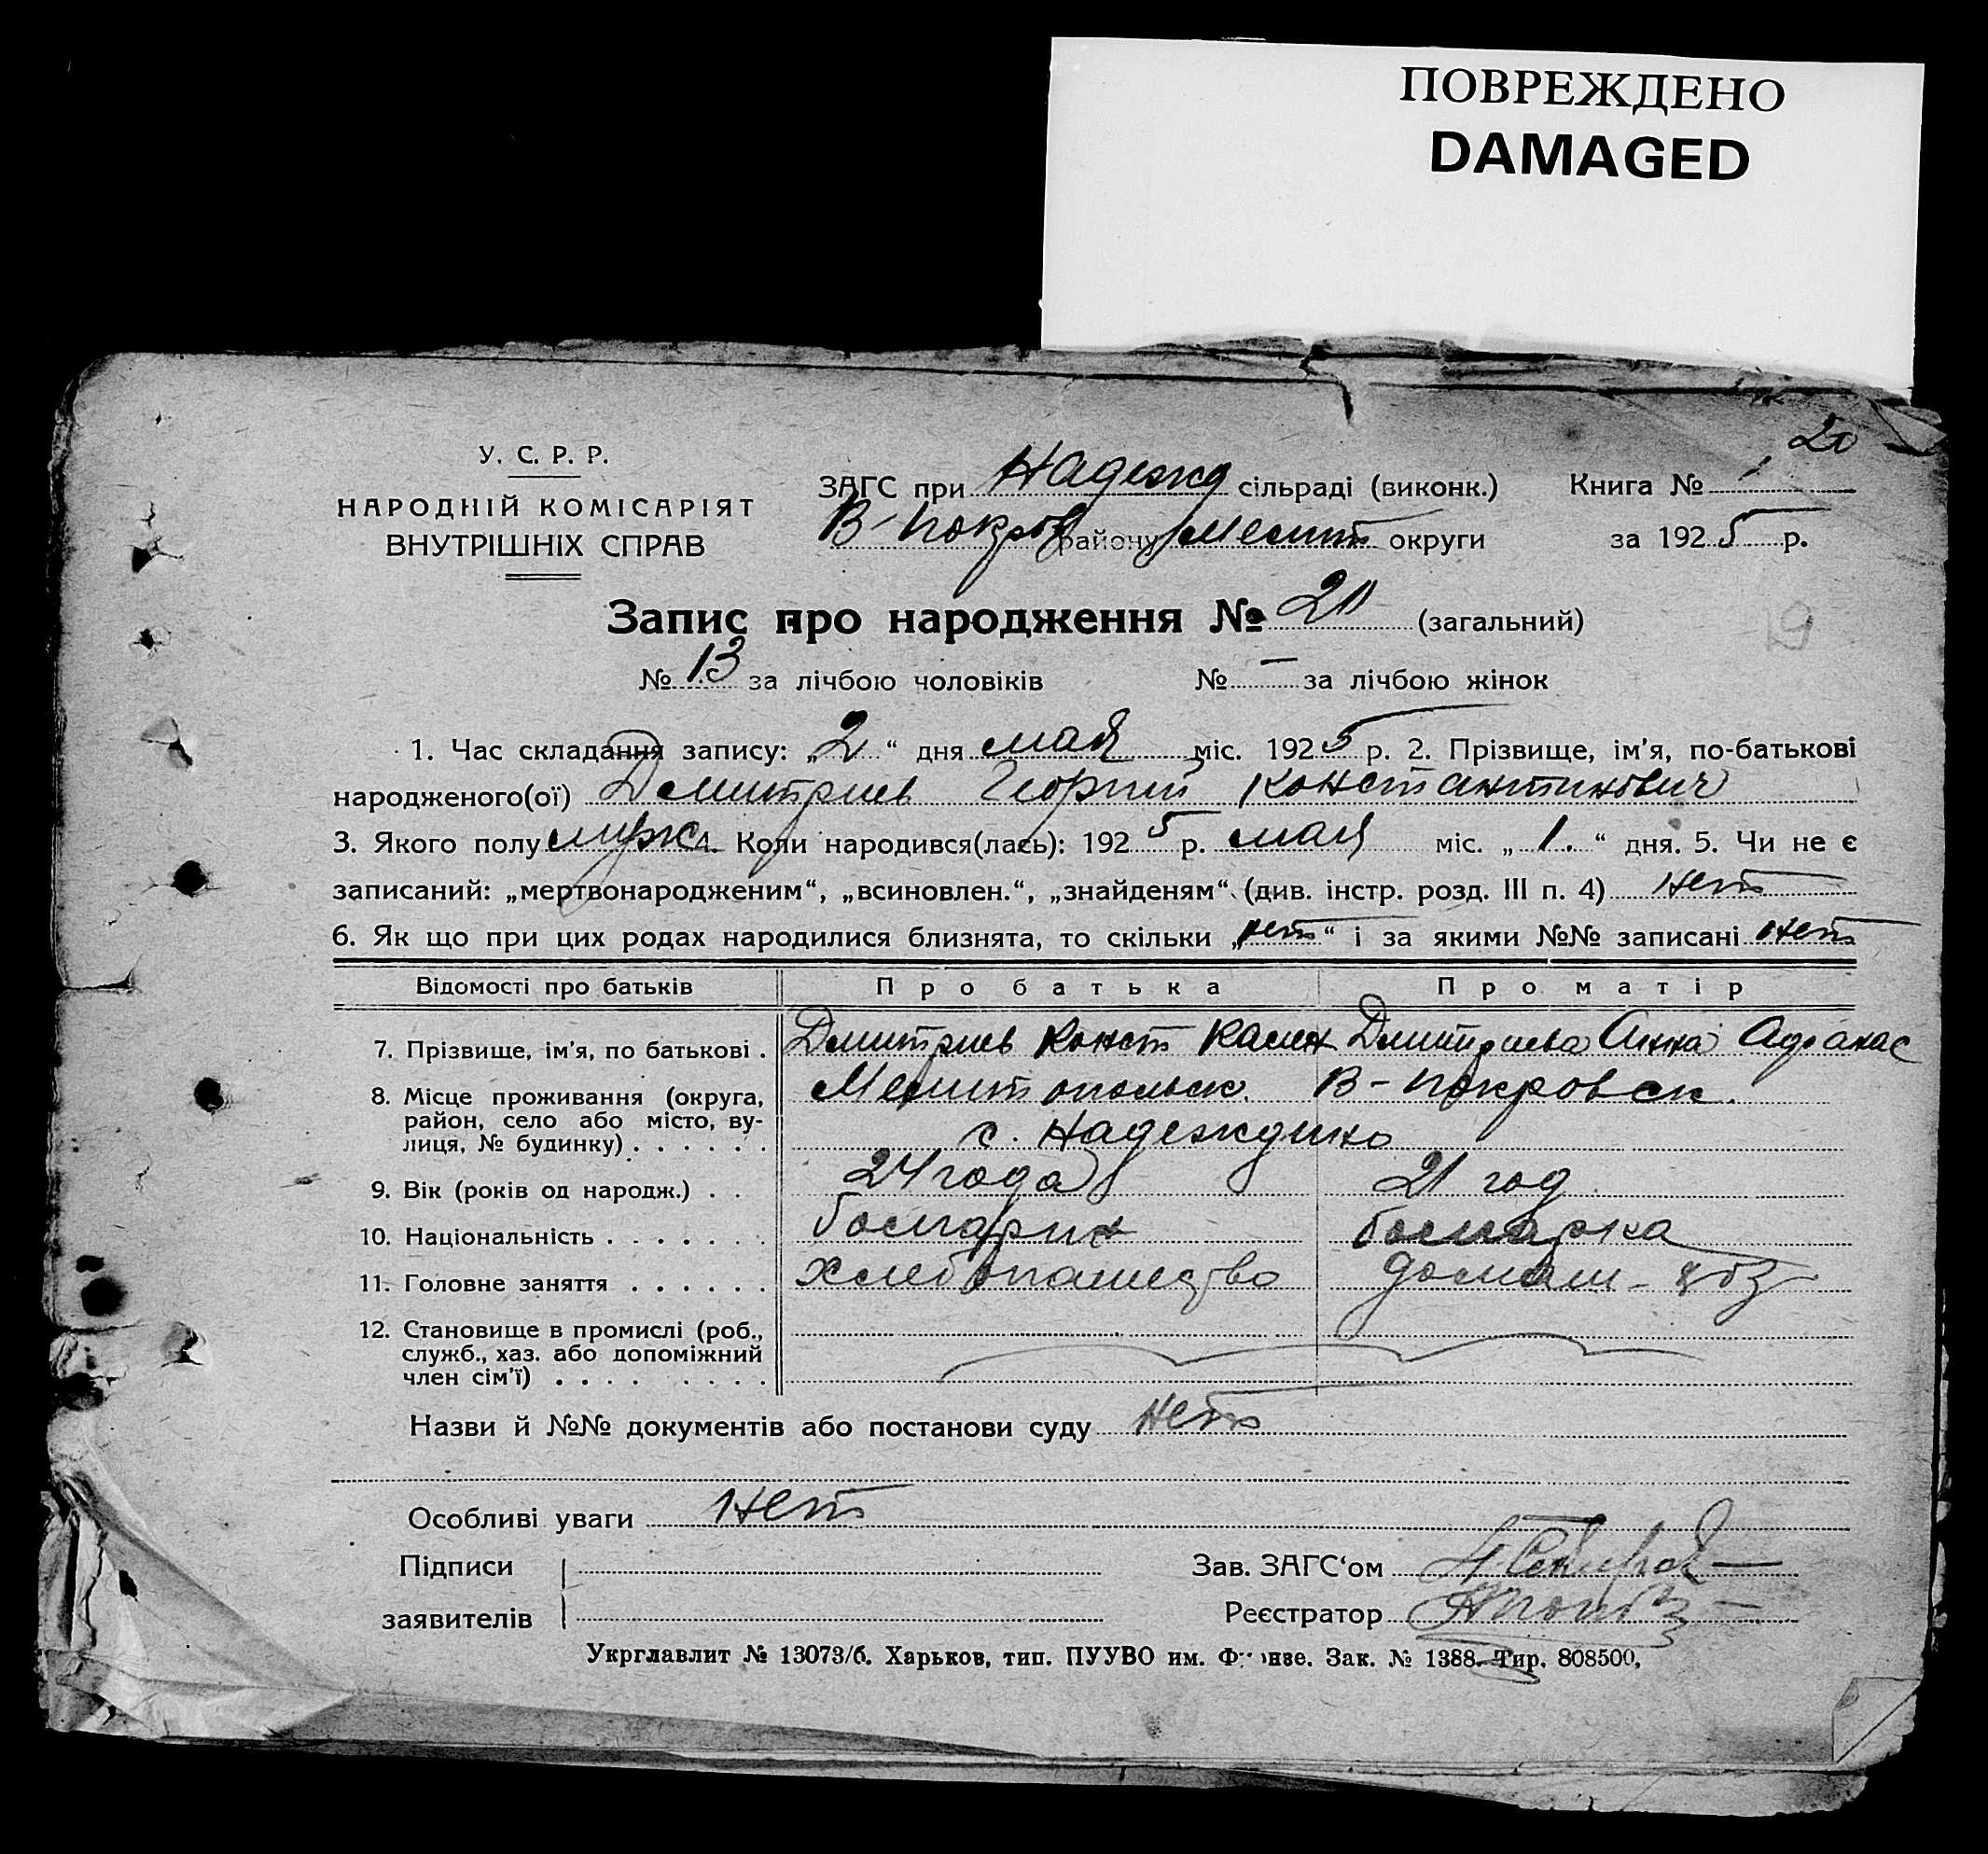 ПОВРЕЖДЕНО
DAMAGED
20
У. С. Р. Р.
НАРОДНІЙ КОМІСАРІЯТ
ВНУТРІШНІХ СПРАВ
ЗАГС при Надежд сільраді (виконк.) Книга № 1
В-Покров району Мелит округи за 1925 р.
Запис про народження № 20 (загальний)
19
№ 13 за лічбою чоловіків № — за лічбою жінок
1. Час складання запису: „2“ дня мая міс. 1925 р. 2. Прізвище, ім’я, по-батькові
народженого(ої) Дмитриев Георгий Константинович
3. Якого полу муж. Коли народився(лась): 1925 р. мая міс. „1.“ дня. 5. Чи не є
записаний: „мертвонародженим“, „всиновлен.“, „знайденям“ (див. інстр. розд. III п. 4) нет
6. Як що при цих родах народилися близнята, то скільки „нет“ і за якими №№ записані нет
Відомості про батьків Про батька Про матір
7. Прізвище, ім’я, по батькові . Дмитриев Конст Дмитриева Анна
8. Місце проживання (округа, Мелитопольск. В-Покровск.
район, село або місто, ву-
лиця, № будинку) . . . . . . с. Надеждино
9. Вік (років од народж.) . . 24 года 21 год
10. Національність . . . . . . . болгарин болгарка
11. Головне заняття . . . . . . хлебопашество домаш-
12. Становище в промислі (роб.,
служб., хаз. або допоміжний
член сім’ї) . . . . . . . . .
Назви й №№ документів або постанови суду нет
Особливі уваги нет
Підписи Зав. ЗАГС‘ом
заявителів Реєстратор
Укрглавлит № 13073/б. Харьков, тип. ПУУВО им. Фрунзе. Зак. № 1388. Тир. 808500,